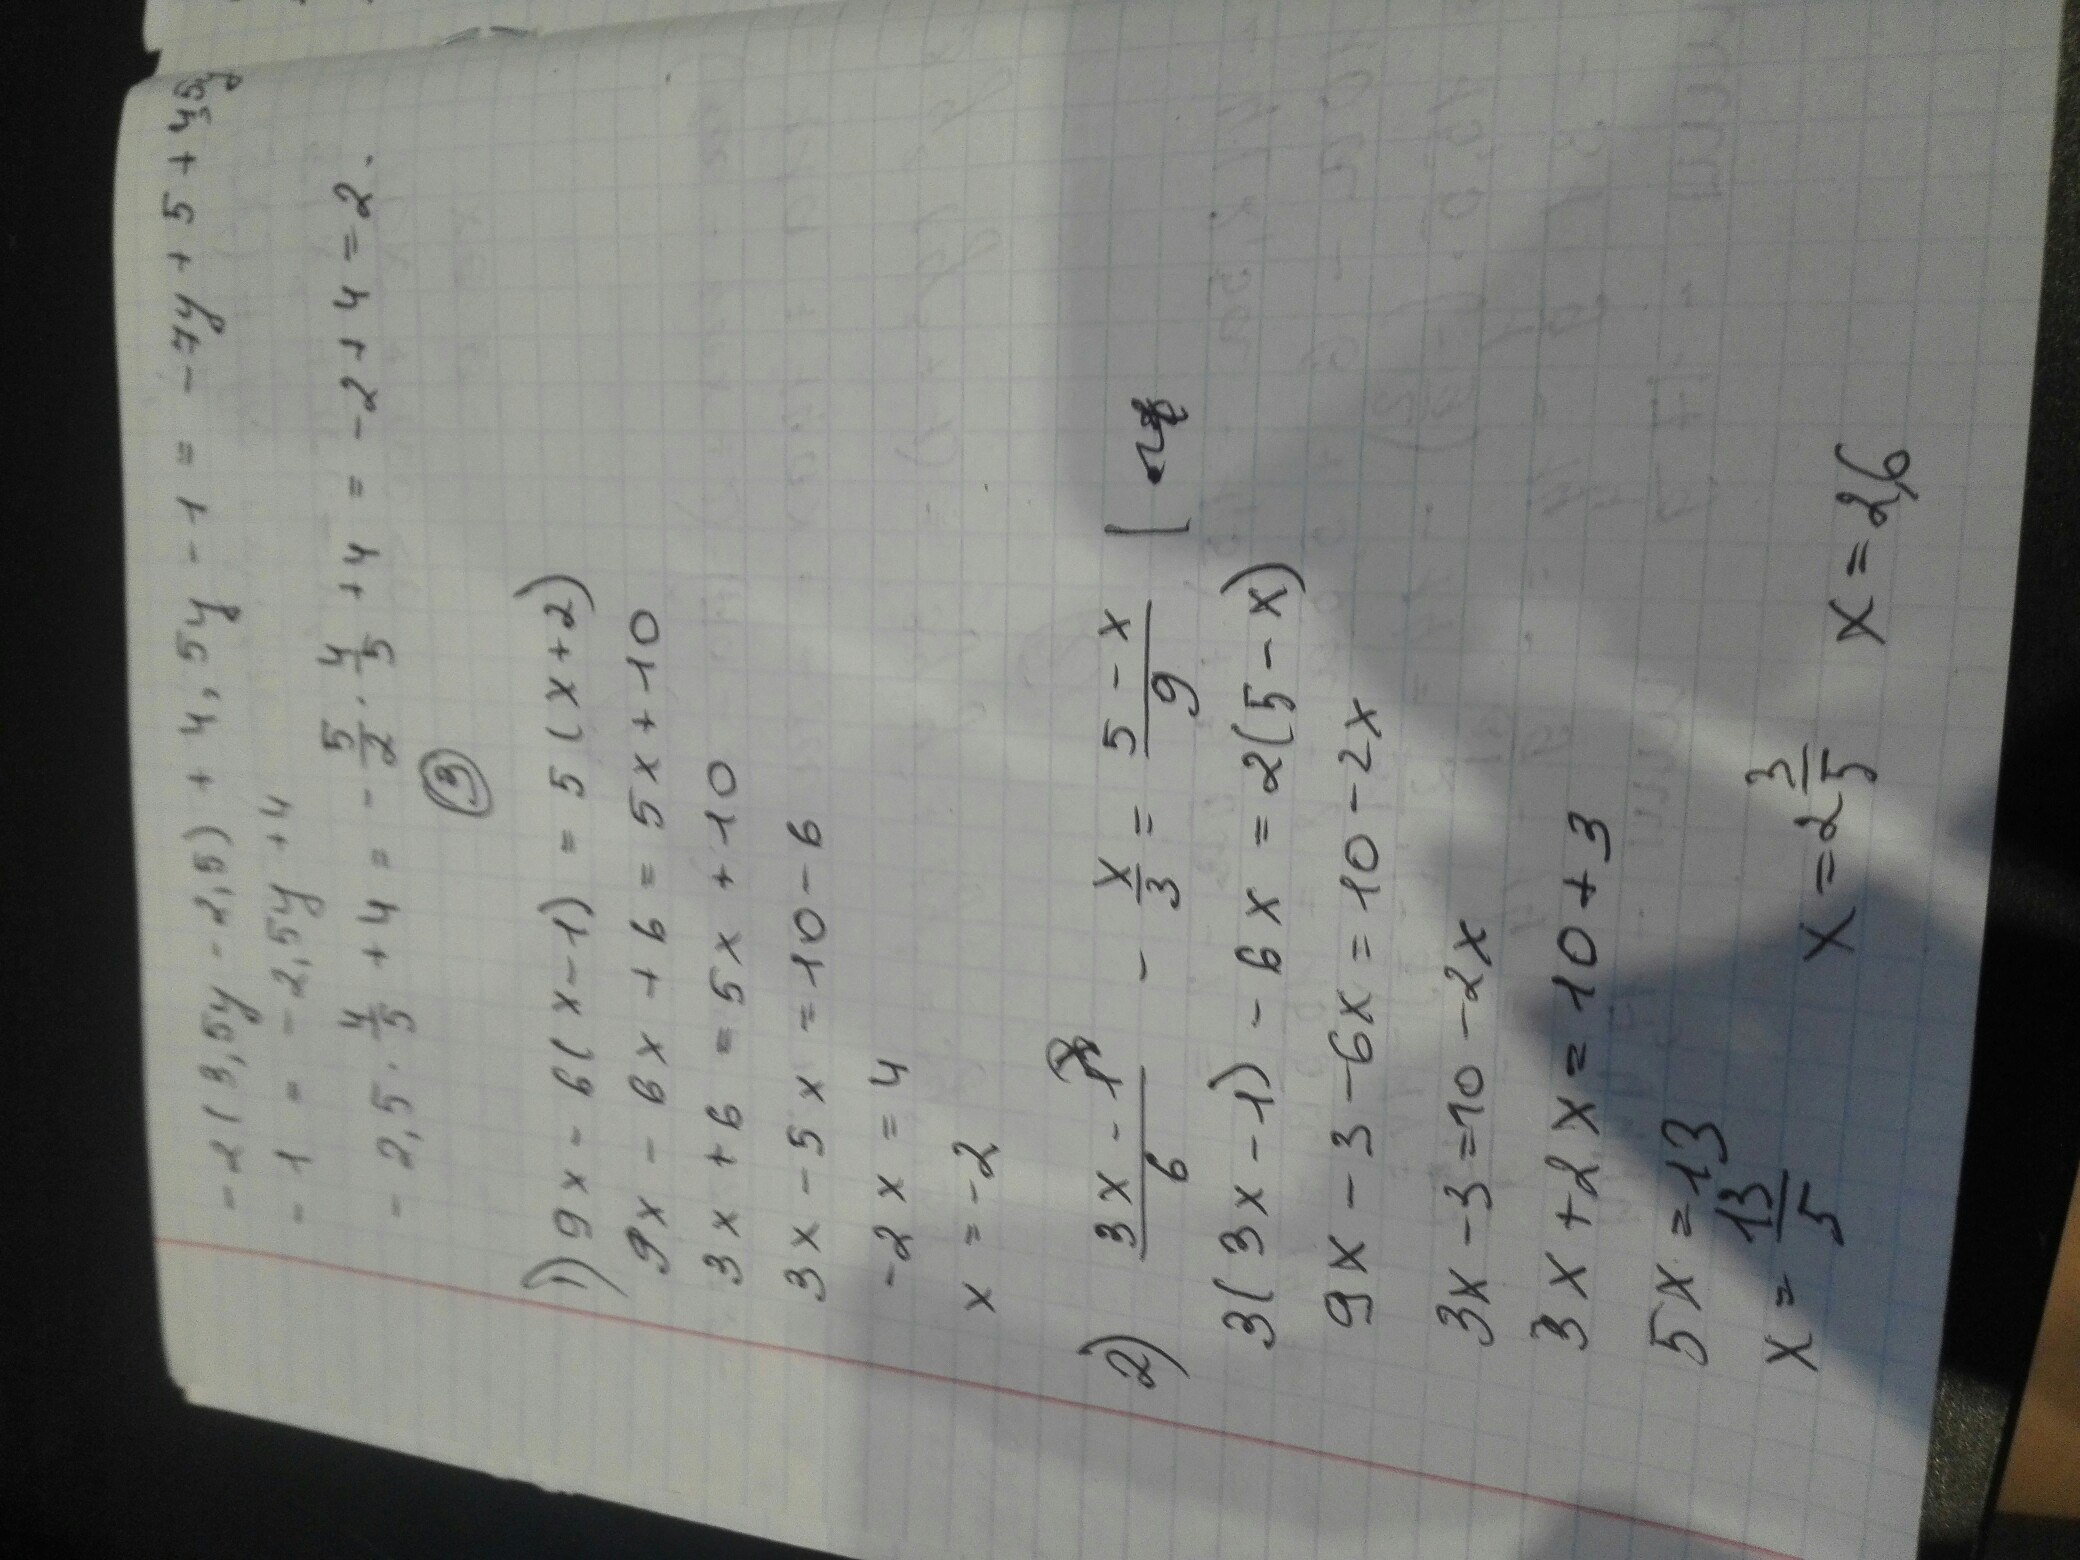 -2(3,5y-2,5)+4,5y-1=-7y+5+4,5y
-1=-2,5y+4
-2,5·4/5+4=-5/2·4/5+4=-2+4=2.
③
1) 9x-6(x-1)=5(x+2)
9x-6x+6=5x+10
3x+6=5x+10
3x-5x=10-6
-2x=4
x=-2
2) (3x-1)/6 - x/3 = (5-x)/9 |
3(3x-1)-6x=2(5-x)
9x-3-6x=10-2x
3x-3=10-2x
3x+2x=10+3
5x=13
x=13/5 x=2 3/5 x=2,6